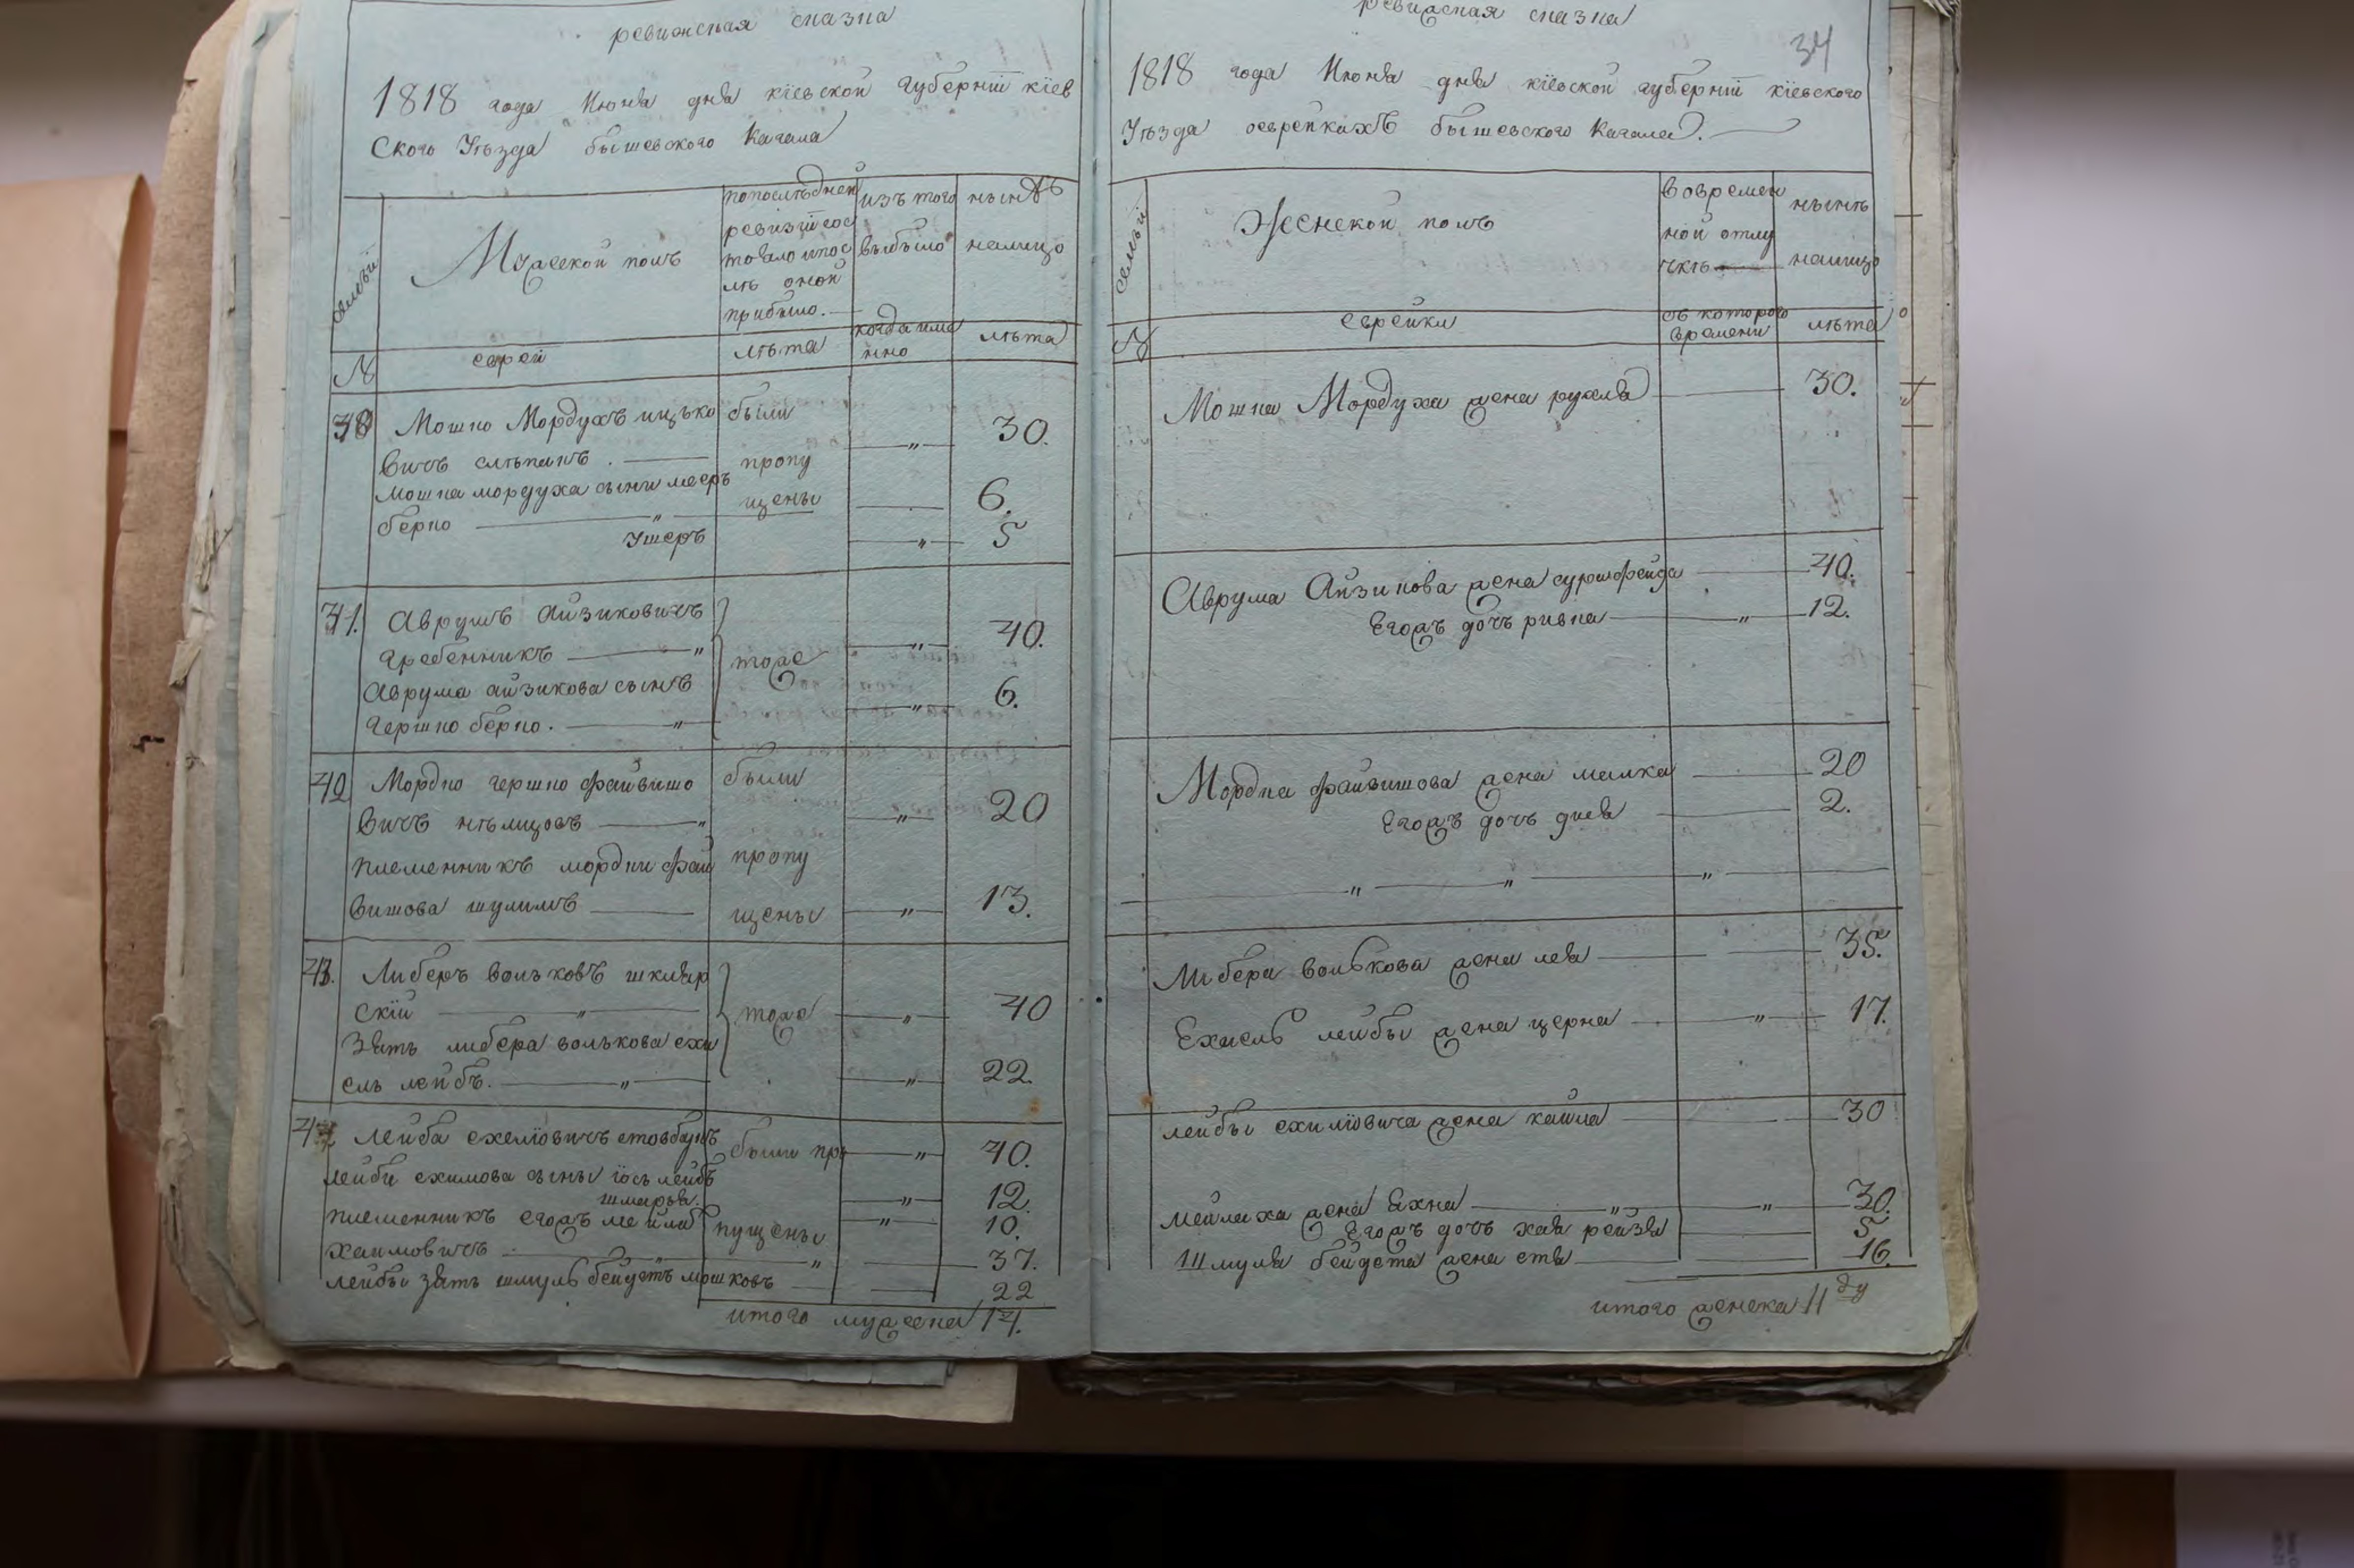 ревижская сказка
1818 года Июня дня кіевской губерніи кіев
ского Уѣзда бышевского Кагала
семьи
Мужеской полъ
попослѣдней
ревизіи сос
тояло ипос
лѣ оной
прибыло.
изъ того
выбыло
нынѣ
налицо
№
еврей
лѣта
когда име
нно
лѣта
Мошко Мордухъ ицько
были
30.
вичъ слѣпакъ.
пропу
Мошка мордуха сыни мееръ
щены
6.
берко
Ушеръ
5
41.
Аврумъ Айзиковичъ
гребенникъ
тоже
40.
Аврума айзикова сынъ
6.
гершко берко.
42
Мордко гершко файвишо
были
вичъ нѣмцовъ
20
племенникъ мордки фай
пропу
вишова шулимъ
щены
13.
43.
Либеръ вольковъ шкляр
скій
тоже
40
Зять либера волькова ехи
ель лейбъ.
22.
Лейба ехеліовичъ стовбунъ
были про
40.
лейби ехилова сыны іось лейбъ
12.
шмарья.
10.
племенникъ егожъ мейлахъ
пущены
хаимовичъ
37.
лейбы зять шмуль бейдетъ мошковъ
22
итого мужеска 14.
34
ревижская сказка
1818 года Июня дня кіевской губерніи кіевского
Уѣзда оеврейкахъ бышевского Кагала.
семьи
Женской полъ
вовремен
ной отлу
чкѣ
нынѣ
налицо
№
еврейки
съ которого
времени
лѣта
Мошка Мордуха жена рухля
30.
Аврума Айзикова жена сурафейга
40.
Егожъ дочь ривка
12.
Мордка файвишова жена малка
20
Егожъ дочь
2.
Либера волькова жена лея
35.
Ехиель лейбы жена церна
17.
лейбы ехиліовича жена
30
мейлаха жена Ехна
30.
Егожъ дочь хая рейзя
5
Шмуля бейдета жена етя
16.
итого женска 11 ду